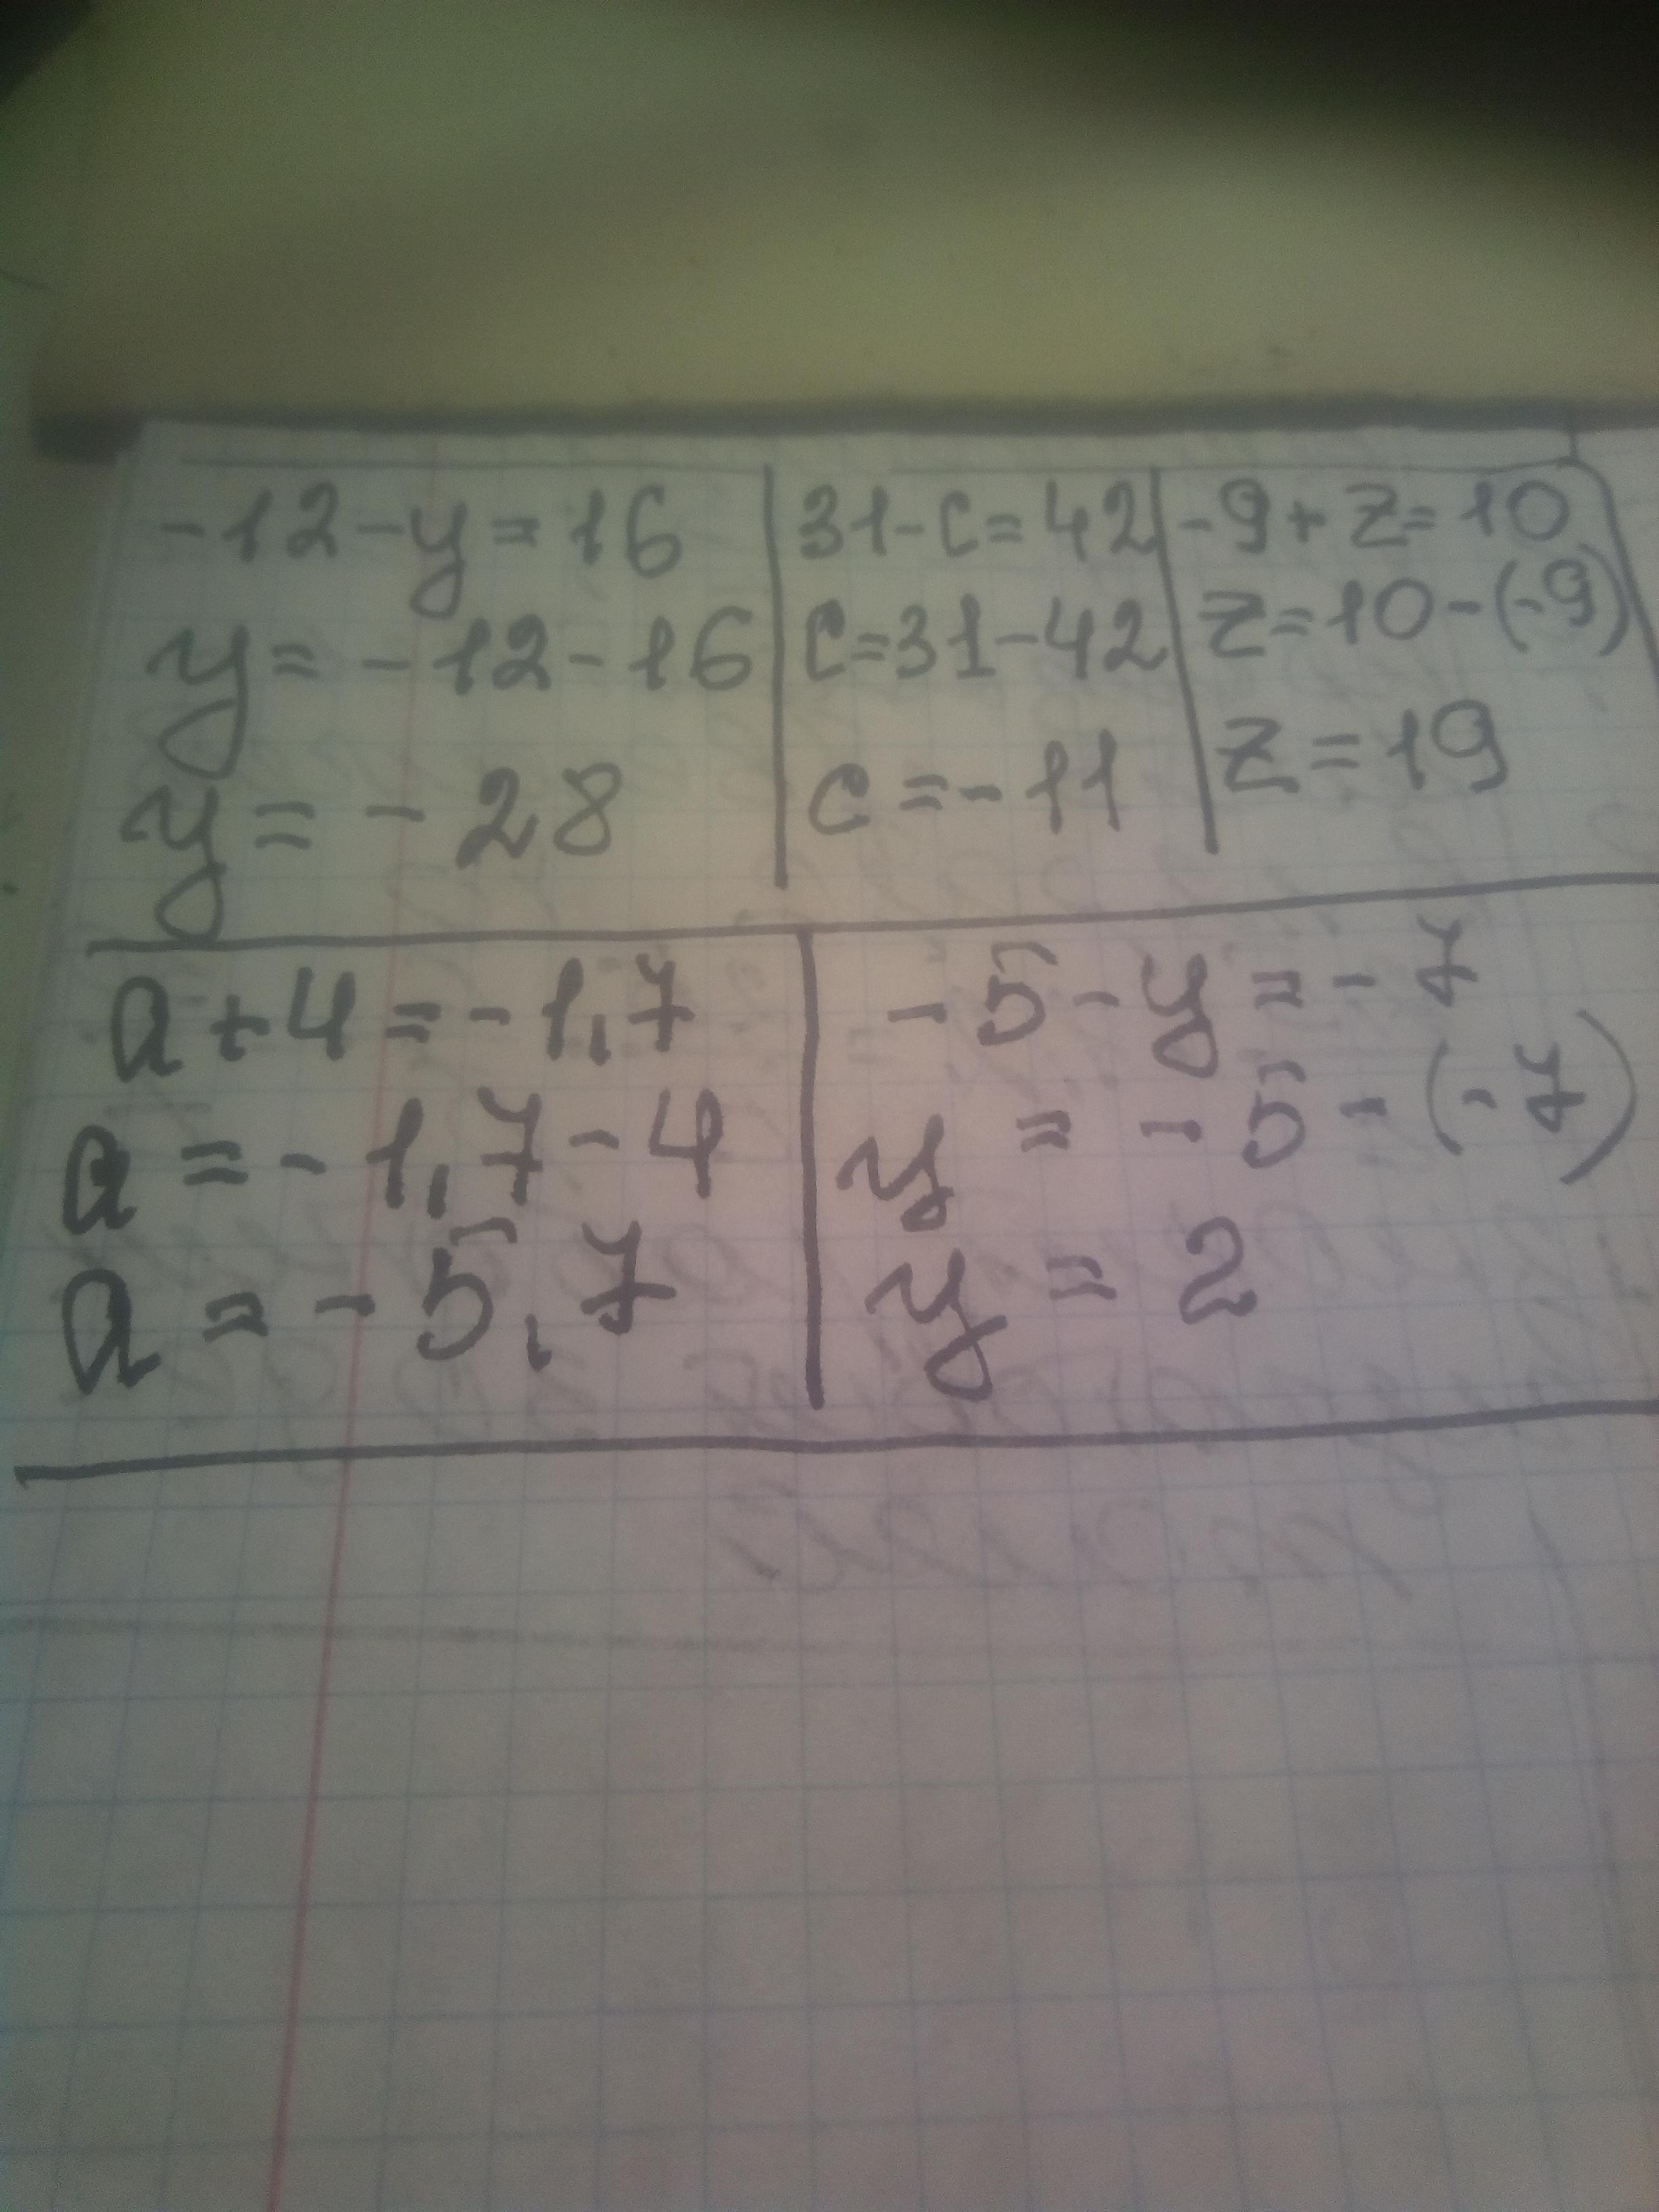 -12-y=16
y=-12-16
y=-28
31-c=42
c=31-42
c=-11
-9+z=10
z=10-(-9)
z=19
a+4=-1,7
a=-1,7-4
a=-5,7
-5-y=-7
y=-5-(-7)
y=2